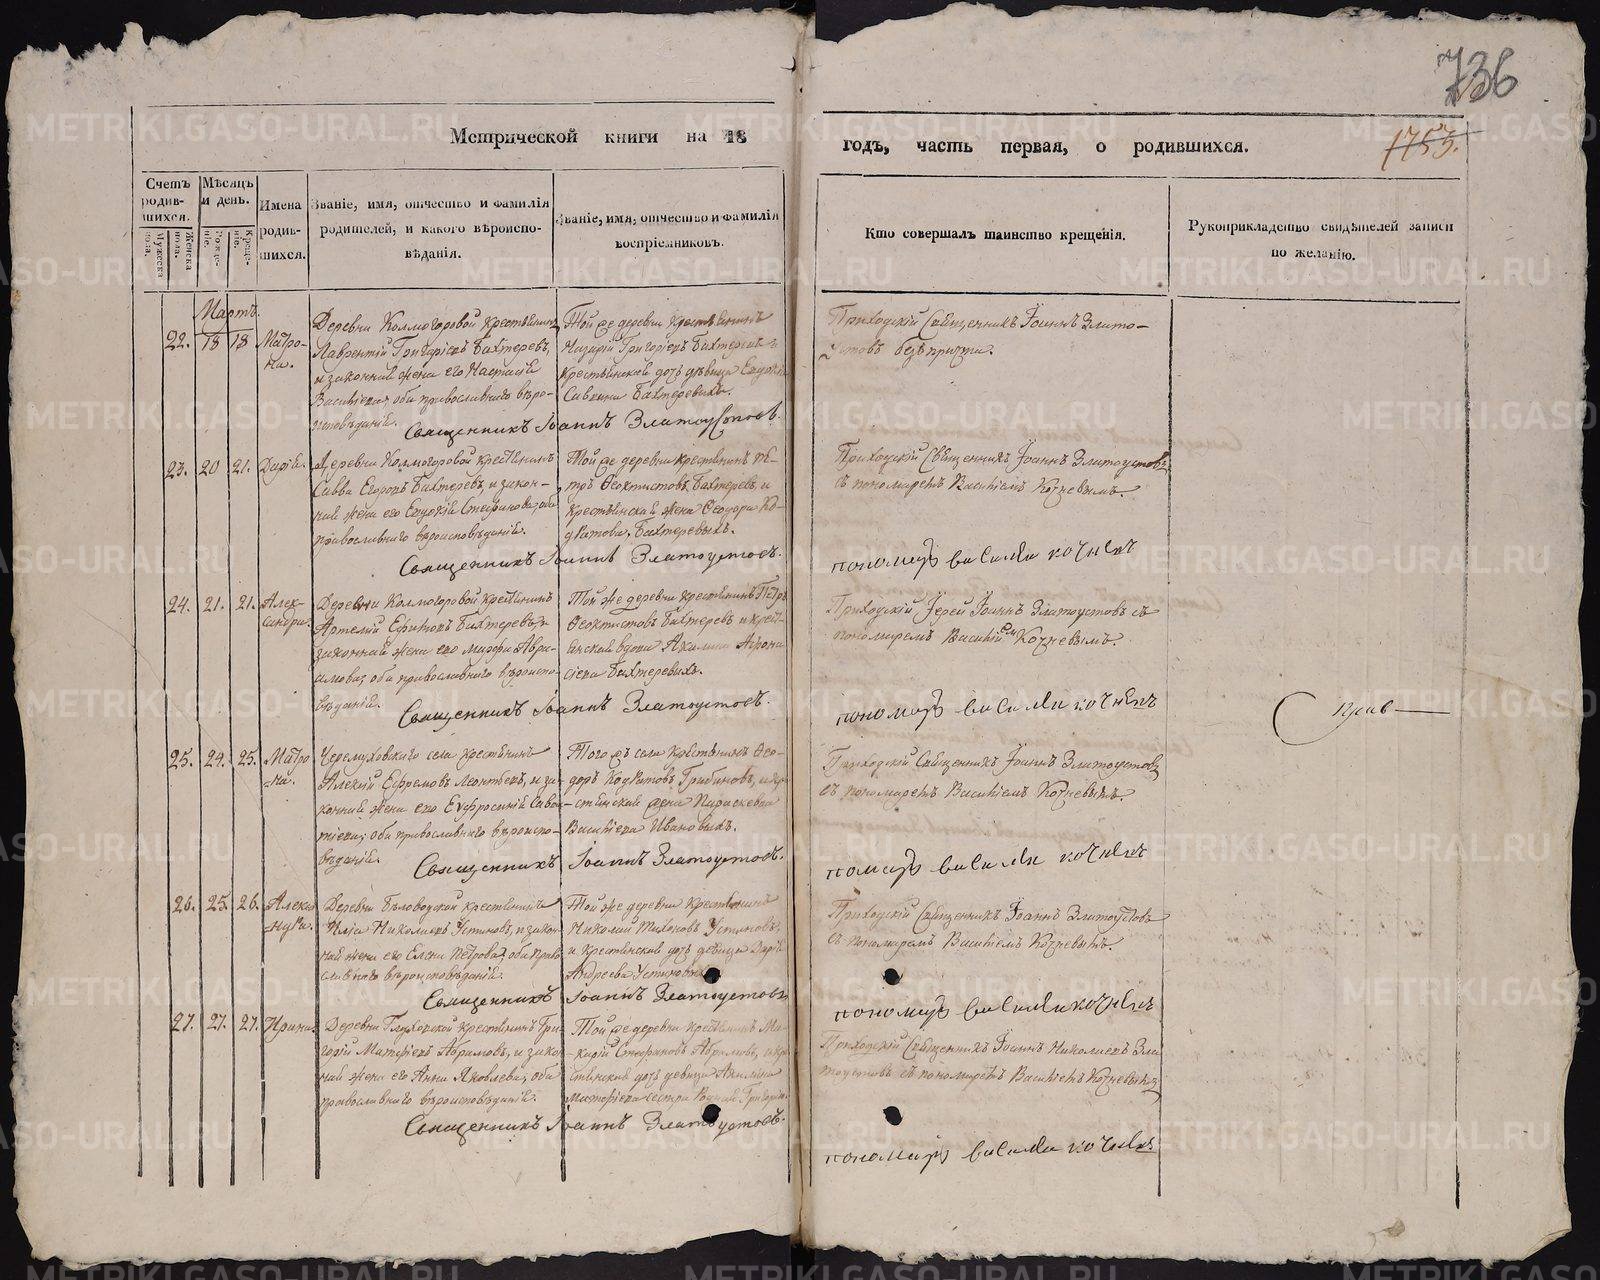 736
1753.
Метрической книги на 18
годъ, часть первая, о родившихся.
Счетъ родив-
шихся.
Мужеска
пола.
Женска
пола.
Мѣсяцъ
и день.
Рожде-
нія.
Креще-
нія.
Имена
родив-
шихся.
Званіе, имя, отчество и фамилія
родителей, и какого вѣроиспо-
вѣданія.
Званіе, имя, отчество и фамилія
воспріемниковъ.
Кто совершалъ таинство крещенія.
Рукоприкладство свидѣтелей записи
по желанію.
Мартъ.
22. 18 18 Матро-
на.
Деревни Колмогоровой крестьянинъ
Лаврентій Григорьевъ Бахтеревъ,
и законная жена его Настасія
Васильева, оба православнаго вѣро-
исповѣданія.
Той же деревни крестьянинъ
Назарій Григорьевъ Бахтеревъ и
крестьянская дочь дѣвица Евдокія
Савина Бахтеревыхъ.
Священникъ Іоаннъ Златоустовъ.
Приходскій Священникъ Іоаннъ Злато-
устовъ безъ причта.
23. 20 21. Дарія.
Деревни Колмогоровой крестьянинъ
Савва Егоровъ Бахтеревъ, и закон-
ная жена его Евдокія Стефанова, оба
православнаго вѣроисповѣданія.
Той же деревни крестьянинъ Пе-
тръ Ѳеоктистовъ Бахтеревъ, и
крестьянская жена Ѳеодора Ко-
дратова, Бахтеревыхъ.
Священникъ Іоаннъ Златоустовъ.
Приходскій Священникъ Іоаннъ Златоустовъ
съ пономаремъ Василіемъ Кочневымъ.
пономарь василій кочневъ
24. 21. 21. Алек-
сандра.
Деревни Колмогоровой крестьянинъ
Артемій Ефимовъ Бахтеревъ, и
законная жена его Марфа Авра-
амова, оба православнаго вѣроиспо-
вѣданія.
Той же деревни крестьянинъ Петръ
Ѳеоктистовъ Бахтеревъ и крест-
янская вдова Акилина Афона-
сіева Бахтеревыхъ.
Священникъ Іоаннъ Златоустовъ.
Приходскій Іерей Іоаннъ Златоустовъ съ
пономаремъ Василіемъ Кочневымъ.
пономарь василій кочневъ
25. 24. 25. Матро
-на.
Черемуховскаго села крестьянинъ
Алексій Ефремовъ Леонтьевъ, и за-
конная жена его Евфросинія Саво-
тіева, оба православнаго вѣроиспо-
вѣданія.
Того жъ села крестьянинъ Ѳео-
доръ Кодратовъ Грибановъ, и кре-
стьянская жена Параскева
Васильева Ивановыхъ.
Священникъ Іоаннъ Златоустовъ.
Приходскій Священникъ Іоаннъ Златоустовъ
съ пономаремъ Василіемъ Кочневымъ.
помарь василій кочневъ
26. 25. 26. Алекса
-ндра.
Деревни Бѣловодской крестьянинъ
Илія Николаевъ Устиновъ, и закон-
ная жена его Елена Петрова, оба право-
славнаго вѣроисповѣданія.
Той же деревни крестьянинъ
Николай Тихоновъ Устиновъ,
и крестьянская дочь дѣвица Дарія
Андреева Устиновыхъ
Священникъ Іоаннъ Златоустовъ
Приходскій Священникъ Іоаннъ Златоустовъ
съ пономаремъ Василіемъ Кочневымъ.
пономарь василій кочневъ
27. 27. 27. Ирина.
Деревни Глуховской крестьянинъ Гри-
горій Матѳіевъ Абрамовъ, и закон-
ная жена его Анна Яковлева, оба
православнаго вѣроисповѣданія.
Той же деревни крестьянинъ Ма-
карій Стефановъ Абрамовъ, и кре-
стьянская дочь дѣвица Акилина
Матѳіева сестра родная Григорія.
Священникъ Іоаннъ Златоустовъ.
Приходскій Священникъ Іоаннъ Николаевъ Зла
тоустовъ съ пономаремъ Василіемъ Кочневымъ
пономарь василій кочневъ.
METRIKI.GASO-URAL.RU